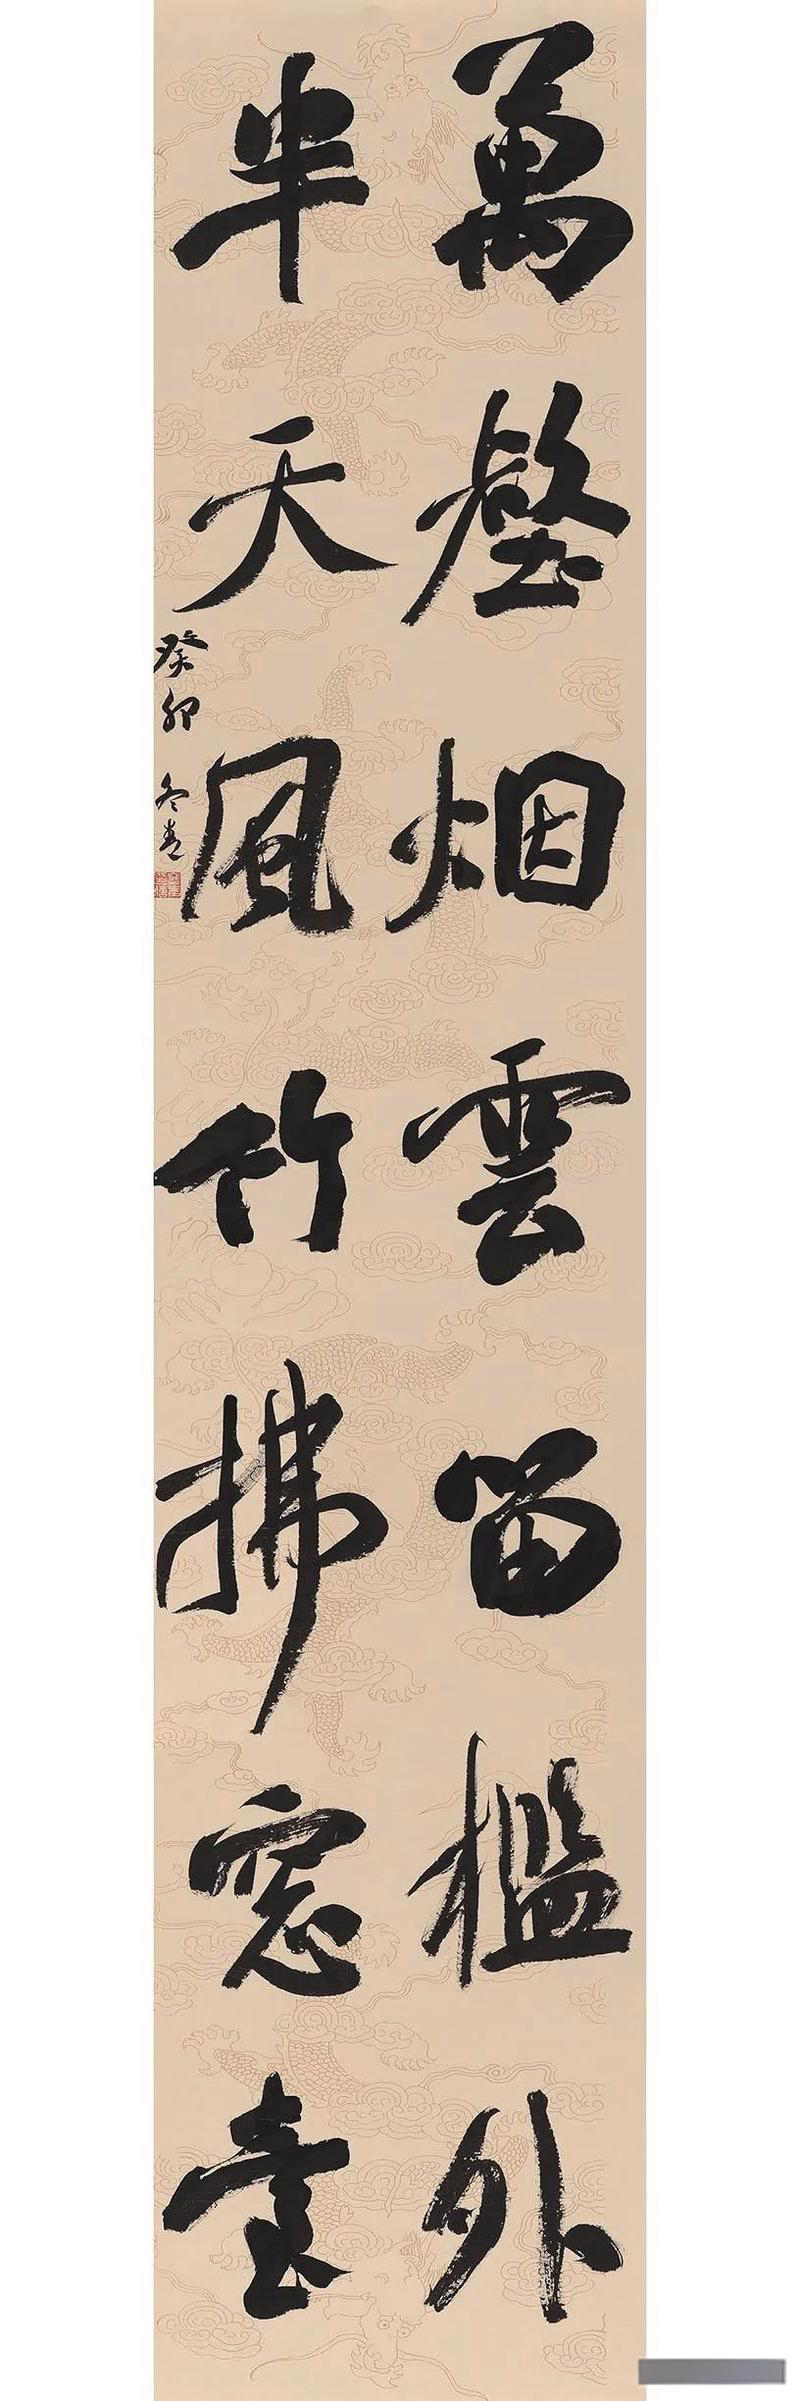 萬壑烟雲留檻外
半天風竹拂窓臺
癸卯冬青